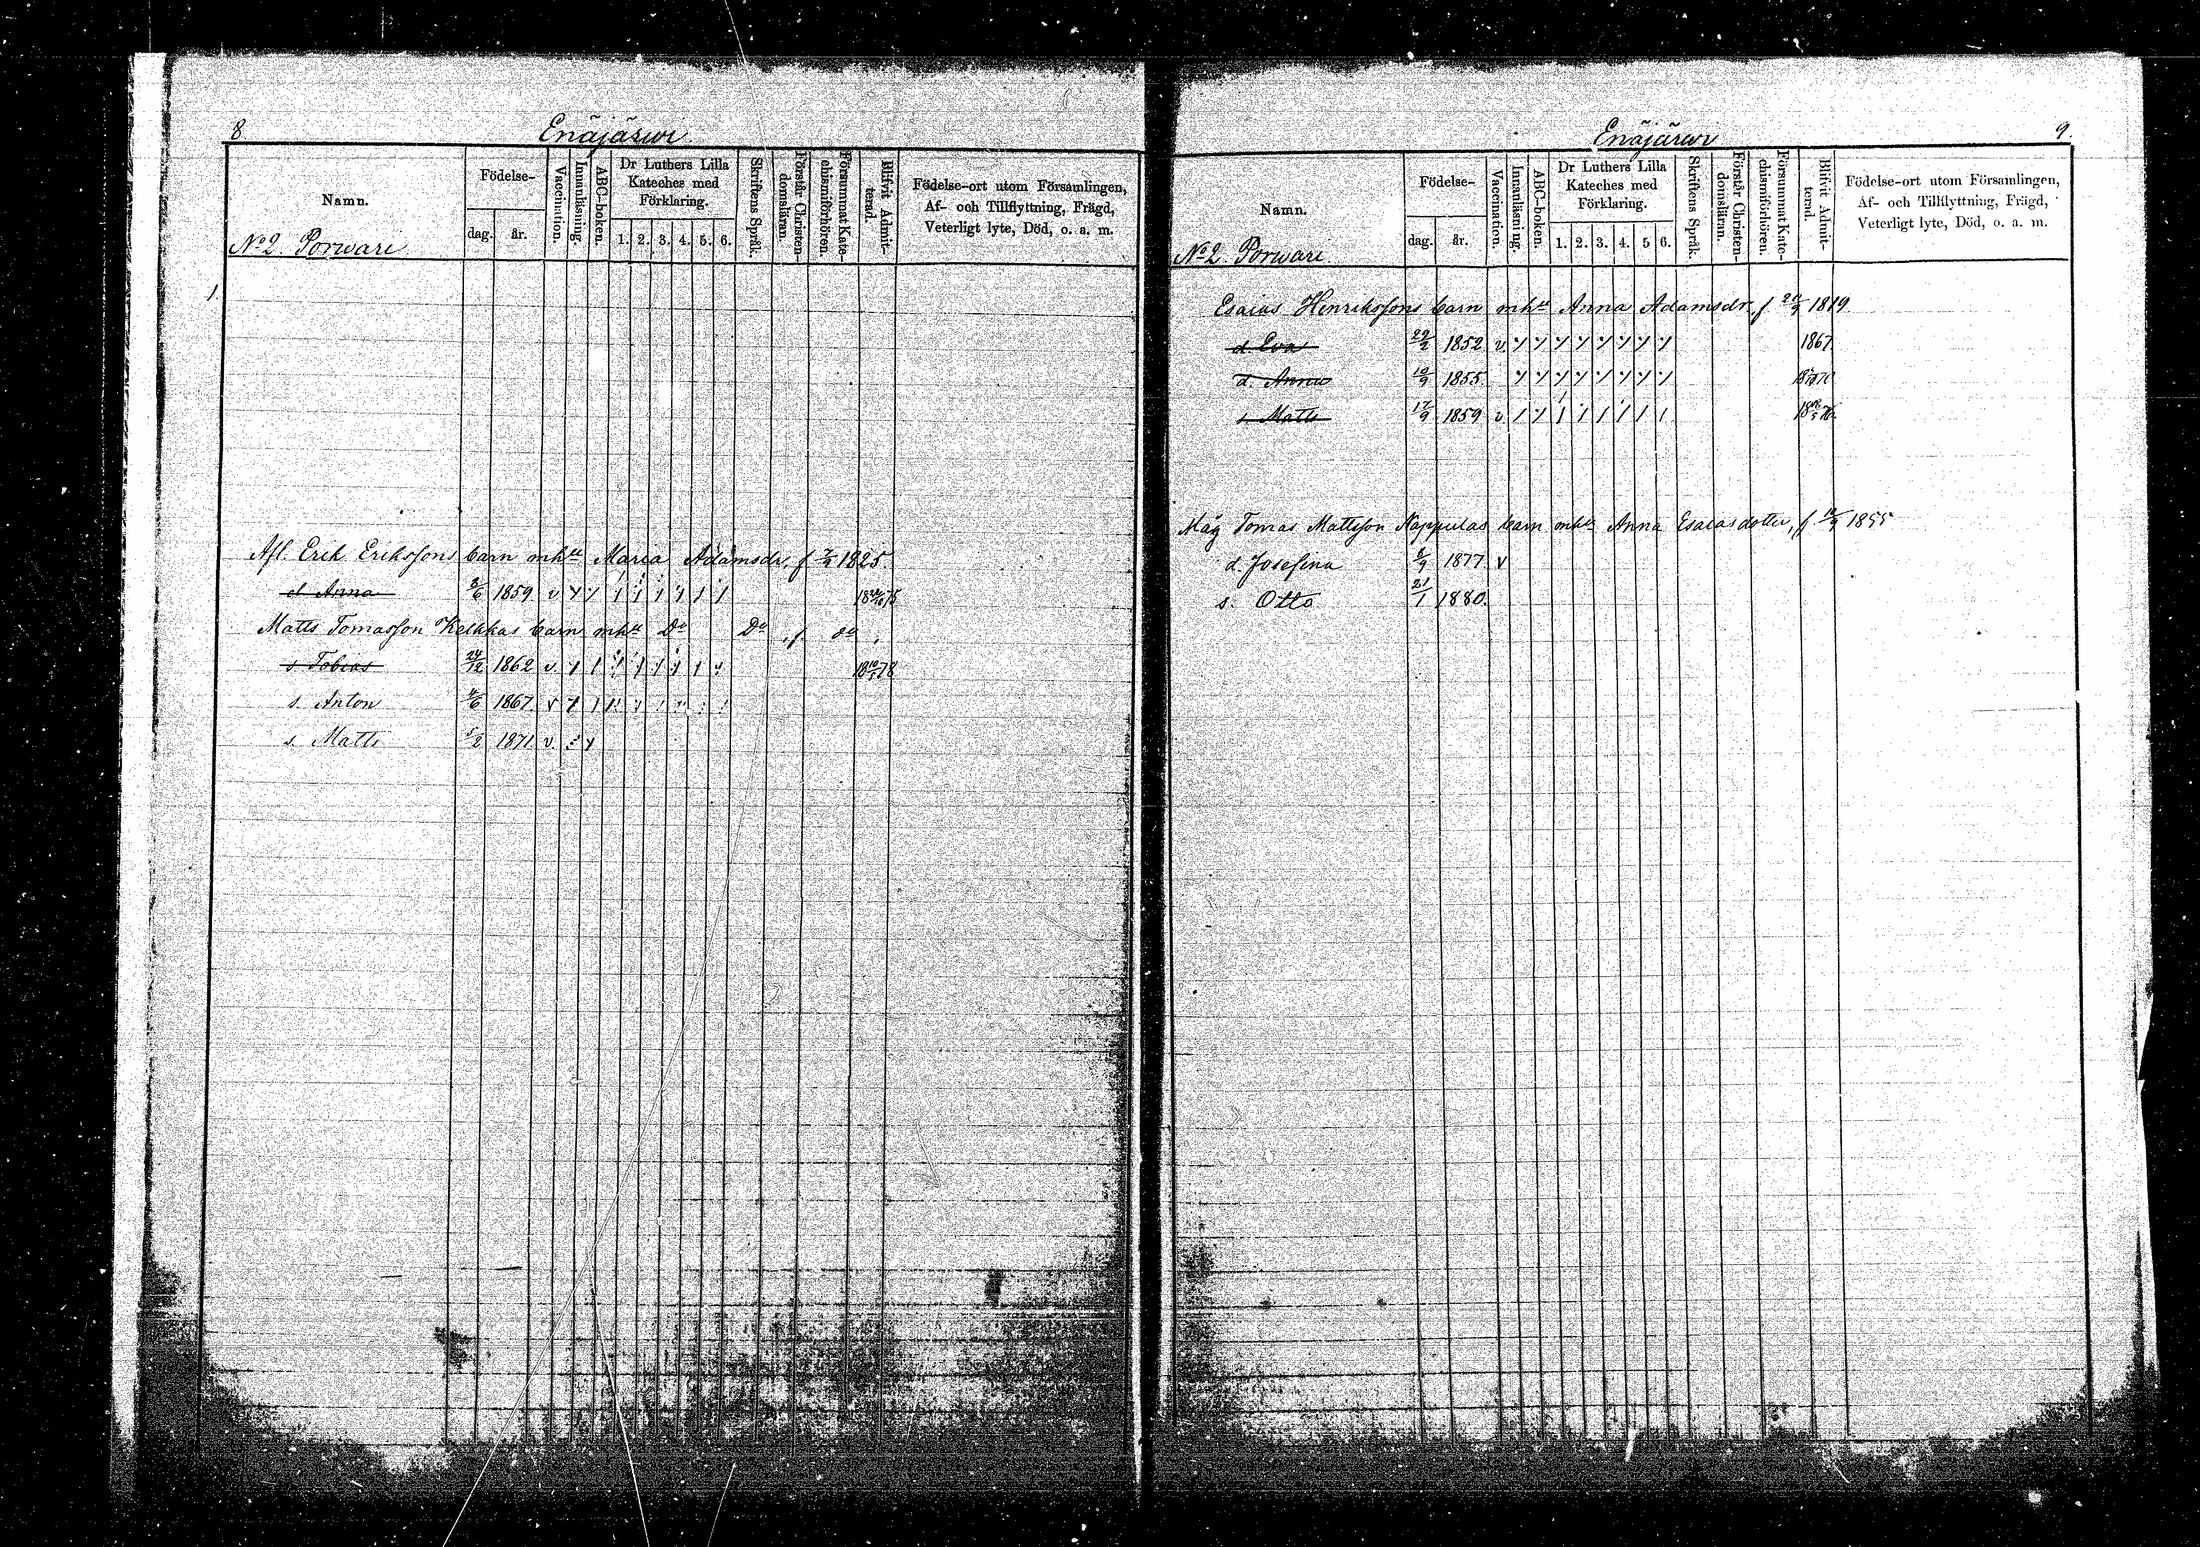 8 Enäjärwi
Namn. Födelse- dag. år. Vaccination. Innanläsning. ABC-boken. Dr Luthers Lilla Kateches med Förklaring. 1. 2. 3. 4. 5. 6. Skriftens Språk. Förstår Christendomsläran. Försummat Katechismiförhören. Blifvit Admitterad. Födelse-ort utom Församlingen, Af- och Tillflyttning, Frägd, Veterligt lyte, Död, o. a. m.
No 2. Porwari
1.
Afl. Erik Erikssons barn mhu Maria Adamsdr, f 1825.
d Anna 3/6 1859 v 75
Matts Tomasson Kelkkas barn mhu Do Do, f. do.
s Tobias 24/12 1862 v. 78
s. Anton 4/6 1867. v
s. Matts 5/2 1871. v.
Enäjärwi 9
Namn. Födelse- dag. år. Vaccination. Innanläsning. ABC-boken. Dr Luthers Lilla Kateches med Förklaring. 1. 2. 3. 4. 5 6. Skriftens Språk. Förstår Christendomsläran. Försummat Katechismiförhören. Blifvit Admitterad. Födelse-ort utom Församlingen, Af- och Tillflyttning, Frägd, Veterligt lyte, Död, o. a. m.
No 2 Porwari
Esaias Henrikssons barn mhu Anna Adamsdr, f 1819.
d. Eva 29/2 1852 v. 1867
d. Anna 10/9 1855.
s Matts 17/9 1859 v
Måg Tomas Mattsson Nappulas barn mhu Anna Esaiasdotter, f 1855
d. Josefina 8/9 1877. v
s. Otto 21/1 1880.